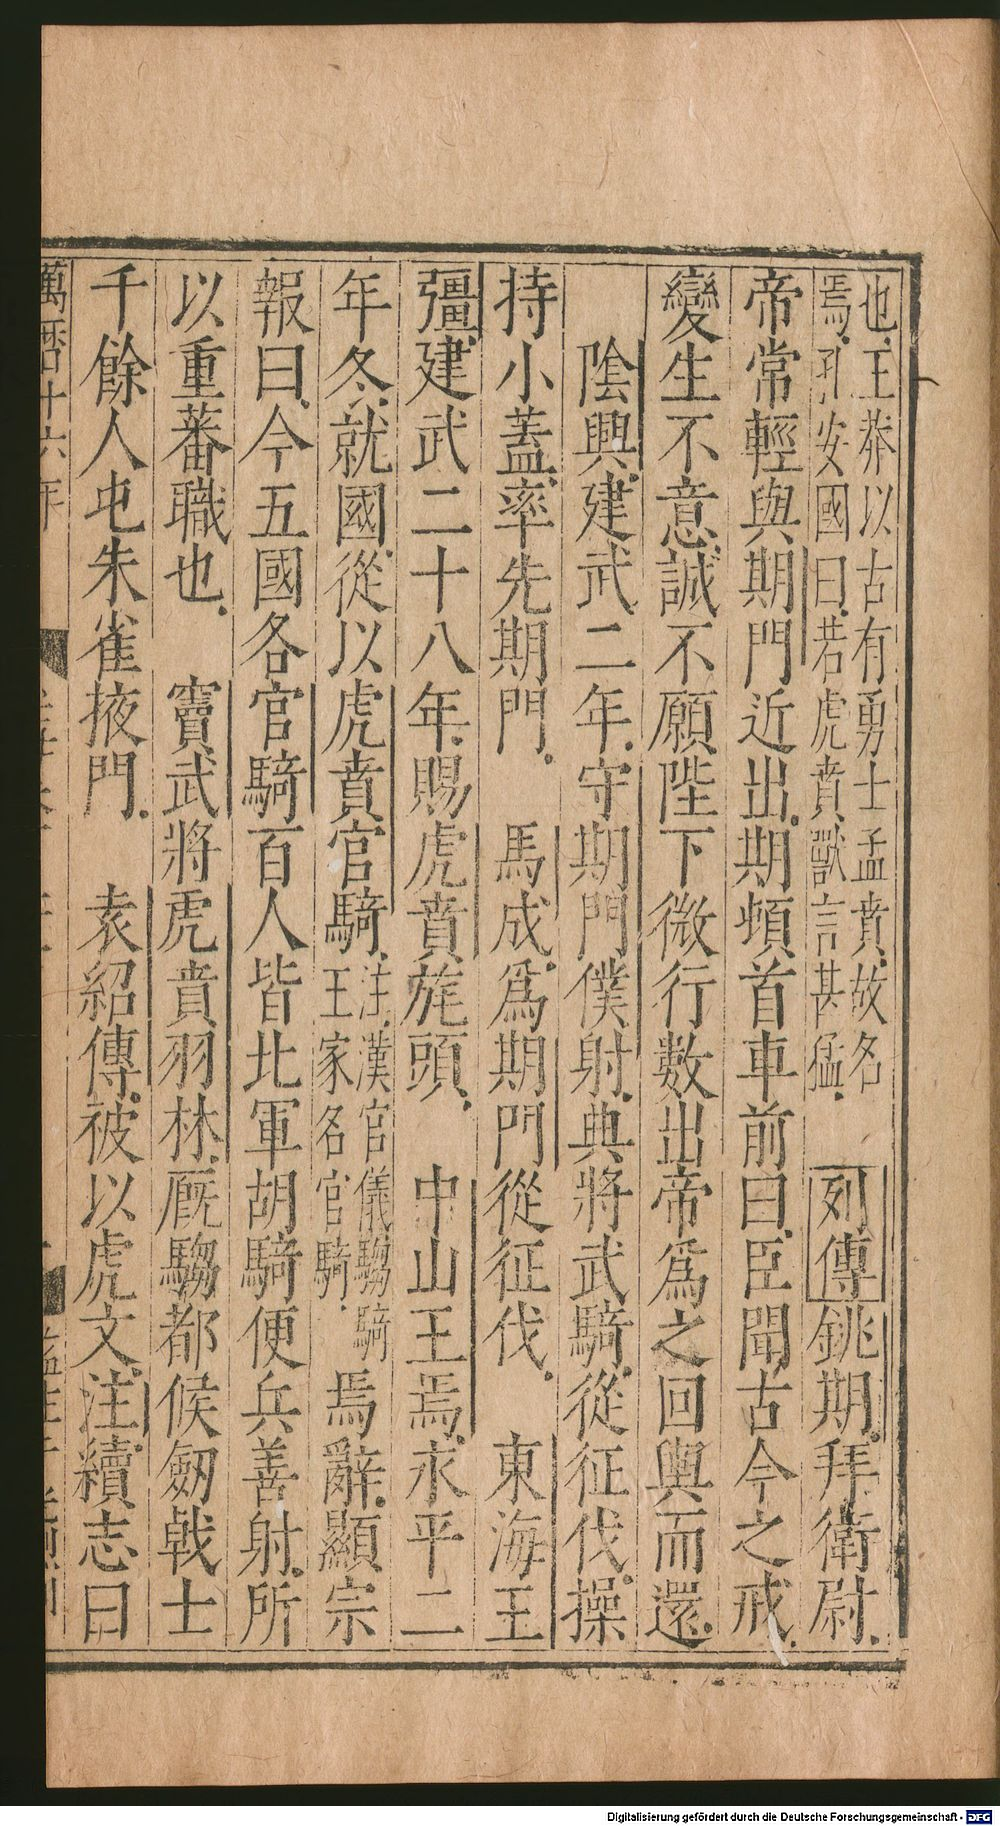 也王莽以古有勇士孟賁故名
焉孔安國曰若虎賁獸言甚猛 列傳銚期拜衛尉
帝常輕與期門近出期頓首車前曰臣聞古今之戒
變生不意誠不願陛下微行數出帝爲之回輿而還
陰興建武二年守期門僕射典將武騎從征伐操
持小蓋率先期門 馬成爲期門從征伐 東海王
彊建武二十八年賜虎賁旄頭 中山王焉永平二
年冬就國從以虎賁官騎注漢官儀騶騎
王家名官騎焉辭顯宗
報曰今五國各官騎百人皆北軍胡騎便兵善射所
以重蕃職也 竇武將虎賁羽林廐騶都候劒戟士
千餘人屯朱雀掖門 袁紹傳被以虎文注續志曰
萬曆十六年
Digitalisierung gefördert durch die Deutsche Forschungsgemeinschaft - DFG